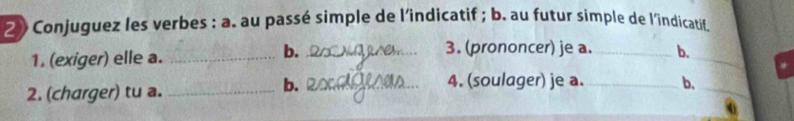 2 Conjuguez les verbes : a. au passé simple de l'indicatif ; b. au futur simple de l'indicatif.
1. (exiger) elle a. b. 3. (prononcer) je a. b.
2. (charger) tu a. b. 4. (soulager) je a. b.